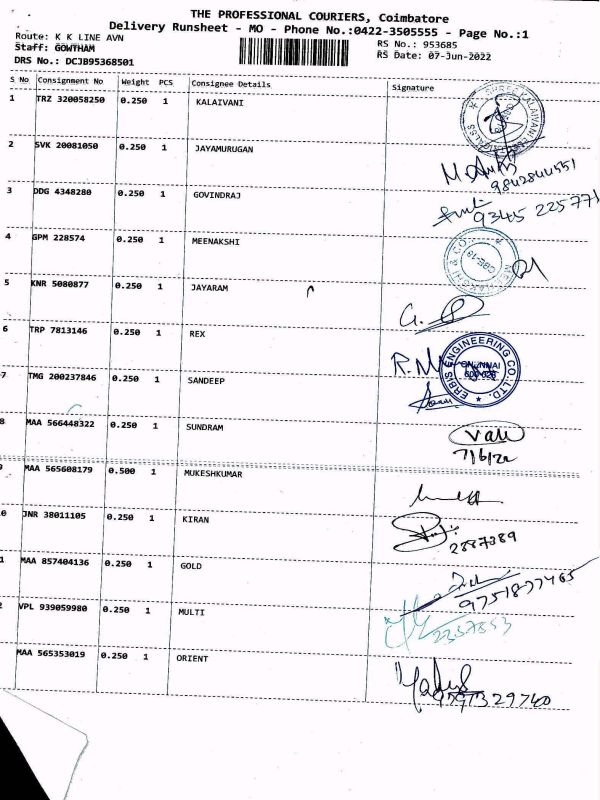 THE PROFESSIONAL COURIERS, Coimbatore
Delivery Runsheet - MO - Phone No.:0422-3505555 - Page No.:1
Route: K K LINE AVN
Staff: GOWTHAM
RS No.: 953685
DRS No.: DCJB95368501
RS Date: 07-Jun-2022
S No Consignment No Weight PCS Consignee Details Signature
1 TRZ 320058250 0.250 1 KALAIVANI
2 SVK 20081050 0.250 1 JAYAMURUGAN
9842844551
3 DDG 4348280 0.250 1 GOVINDRAJ
9345 225771
4 GPM 228574 0.250 1 MEENAKSHI
5 KNR 5080877 0.250 1 JAYARAM
6 TRP 7813146 0.250 1 REX
ERBIS ENGINEERING CO.LTD.
CHENNAI
600 028
7 TMG 200237846 0.250 1 SANDEEP
8 MAA 566448322 0.250 1 SUNDRAM
7/6/22
9 MAA 565608179 0.500 1 MUKESHKUMAR
0 JNR 38011105 0.250 1 KIRAN
2887389
1 MAA 857404136 0.250 1 GOLD
9751877465
2 VPL 939059980 0.250 1 MULTI
2357853
MAA 565353019 0.250 1 ORIENT
9791329740